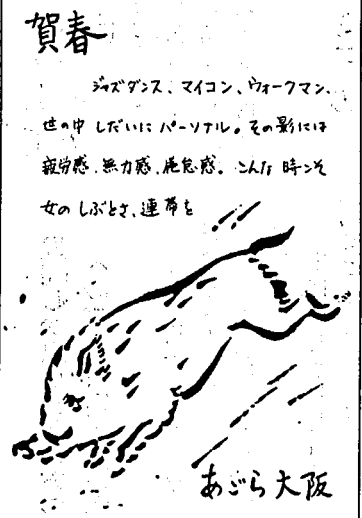 賀春
ジャズダンス、マイコン、ウォークマン、
世の中 しだいに パーソナル。その影には
疲労感、無力感、倦怠感。こんな 時こそ
女の しぶとさ、連帯を
あごら大阪